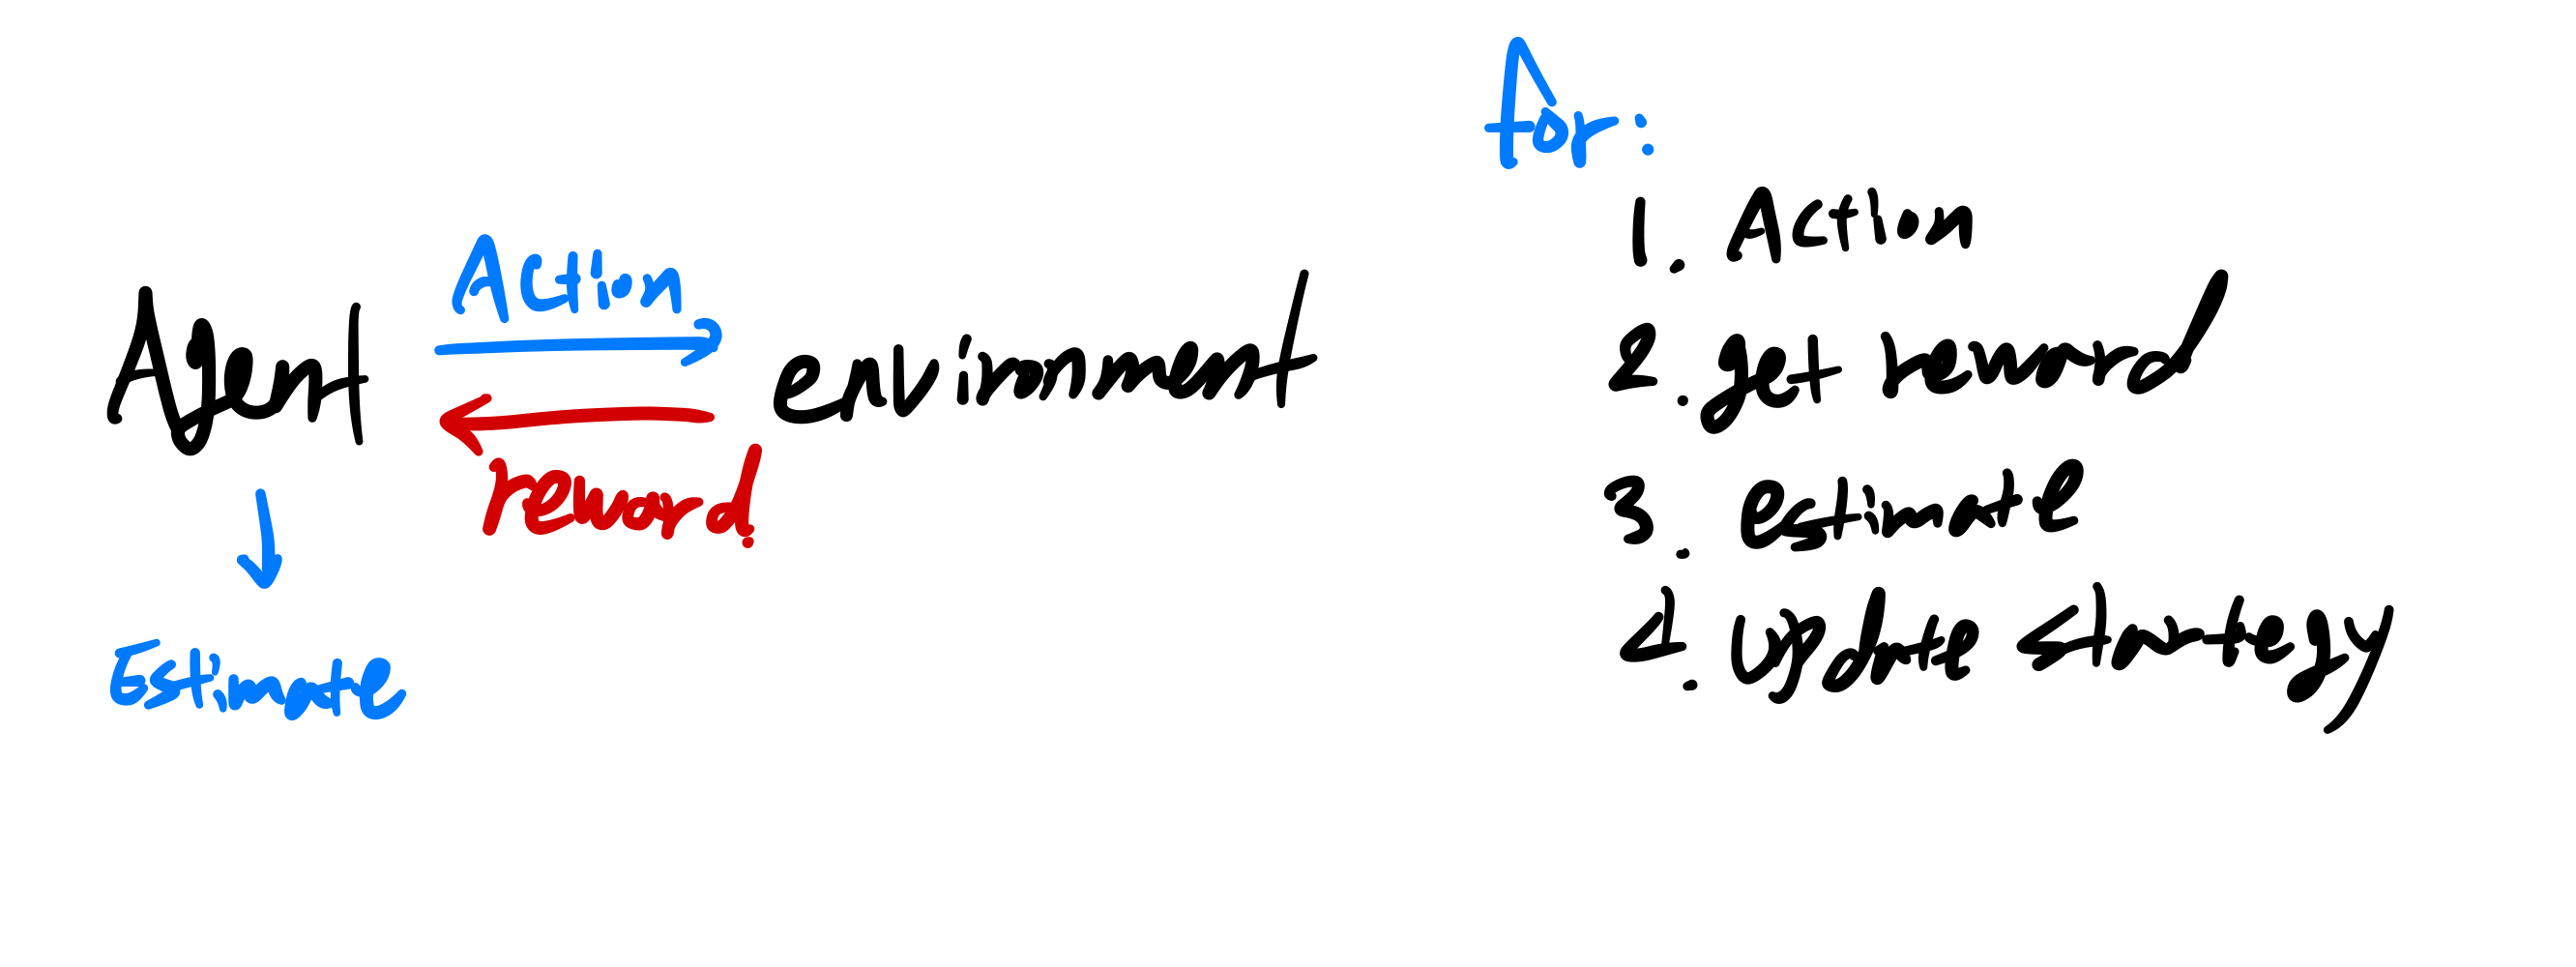 Action
Agent environment
reward.
Estimate
for:
1. Action
2. get reward
3. estimate
4. update startegy